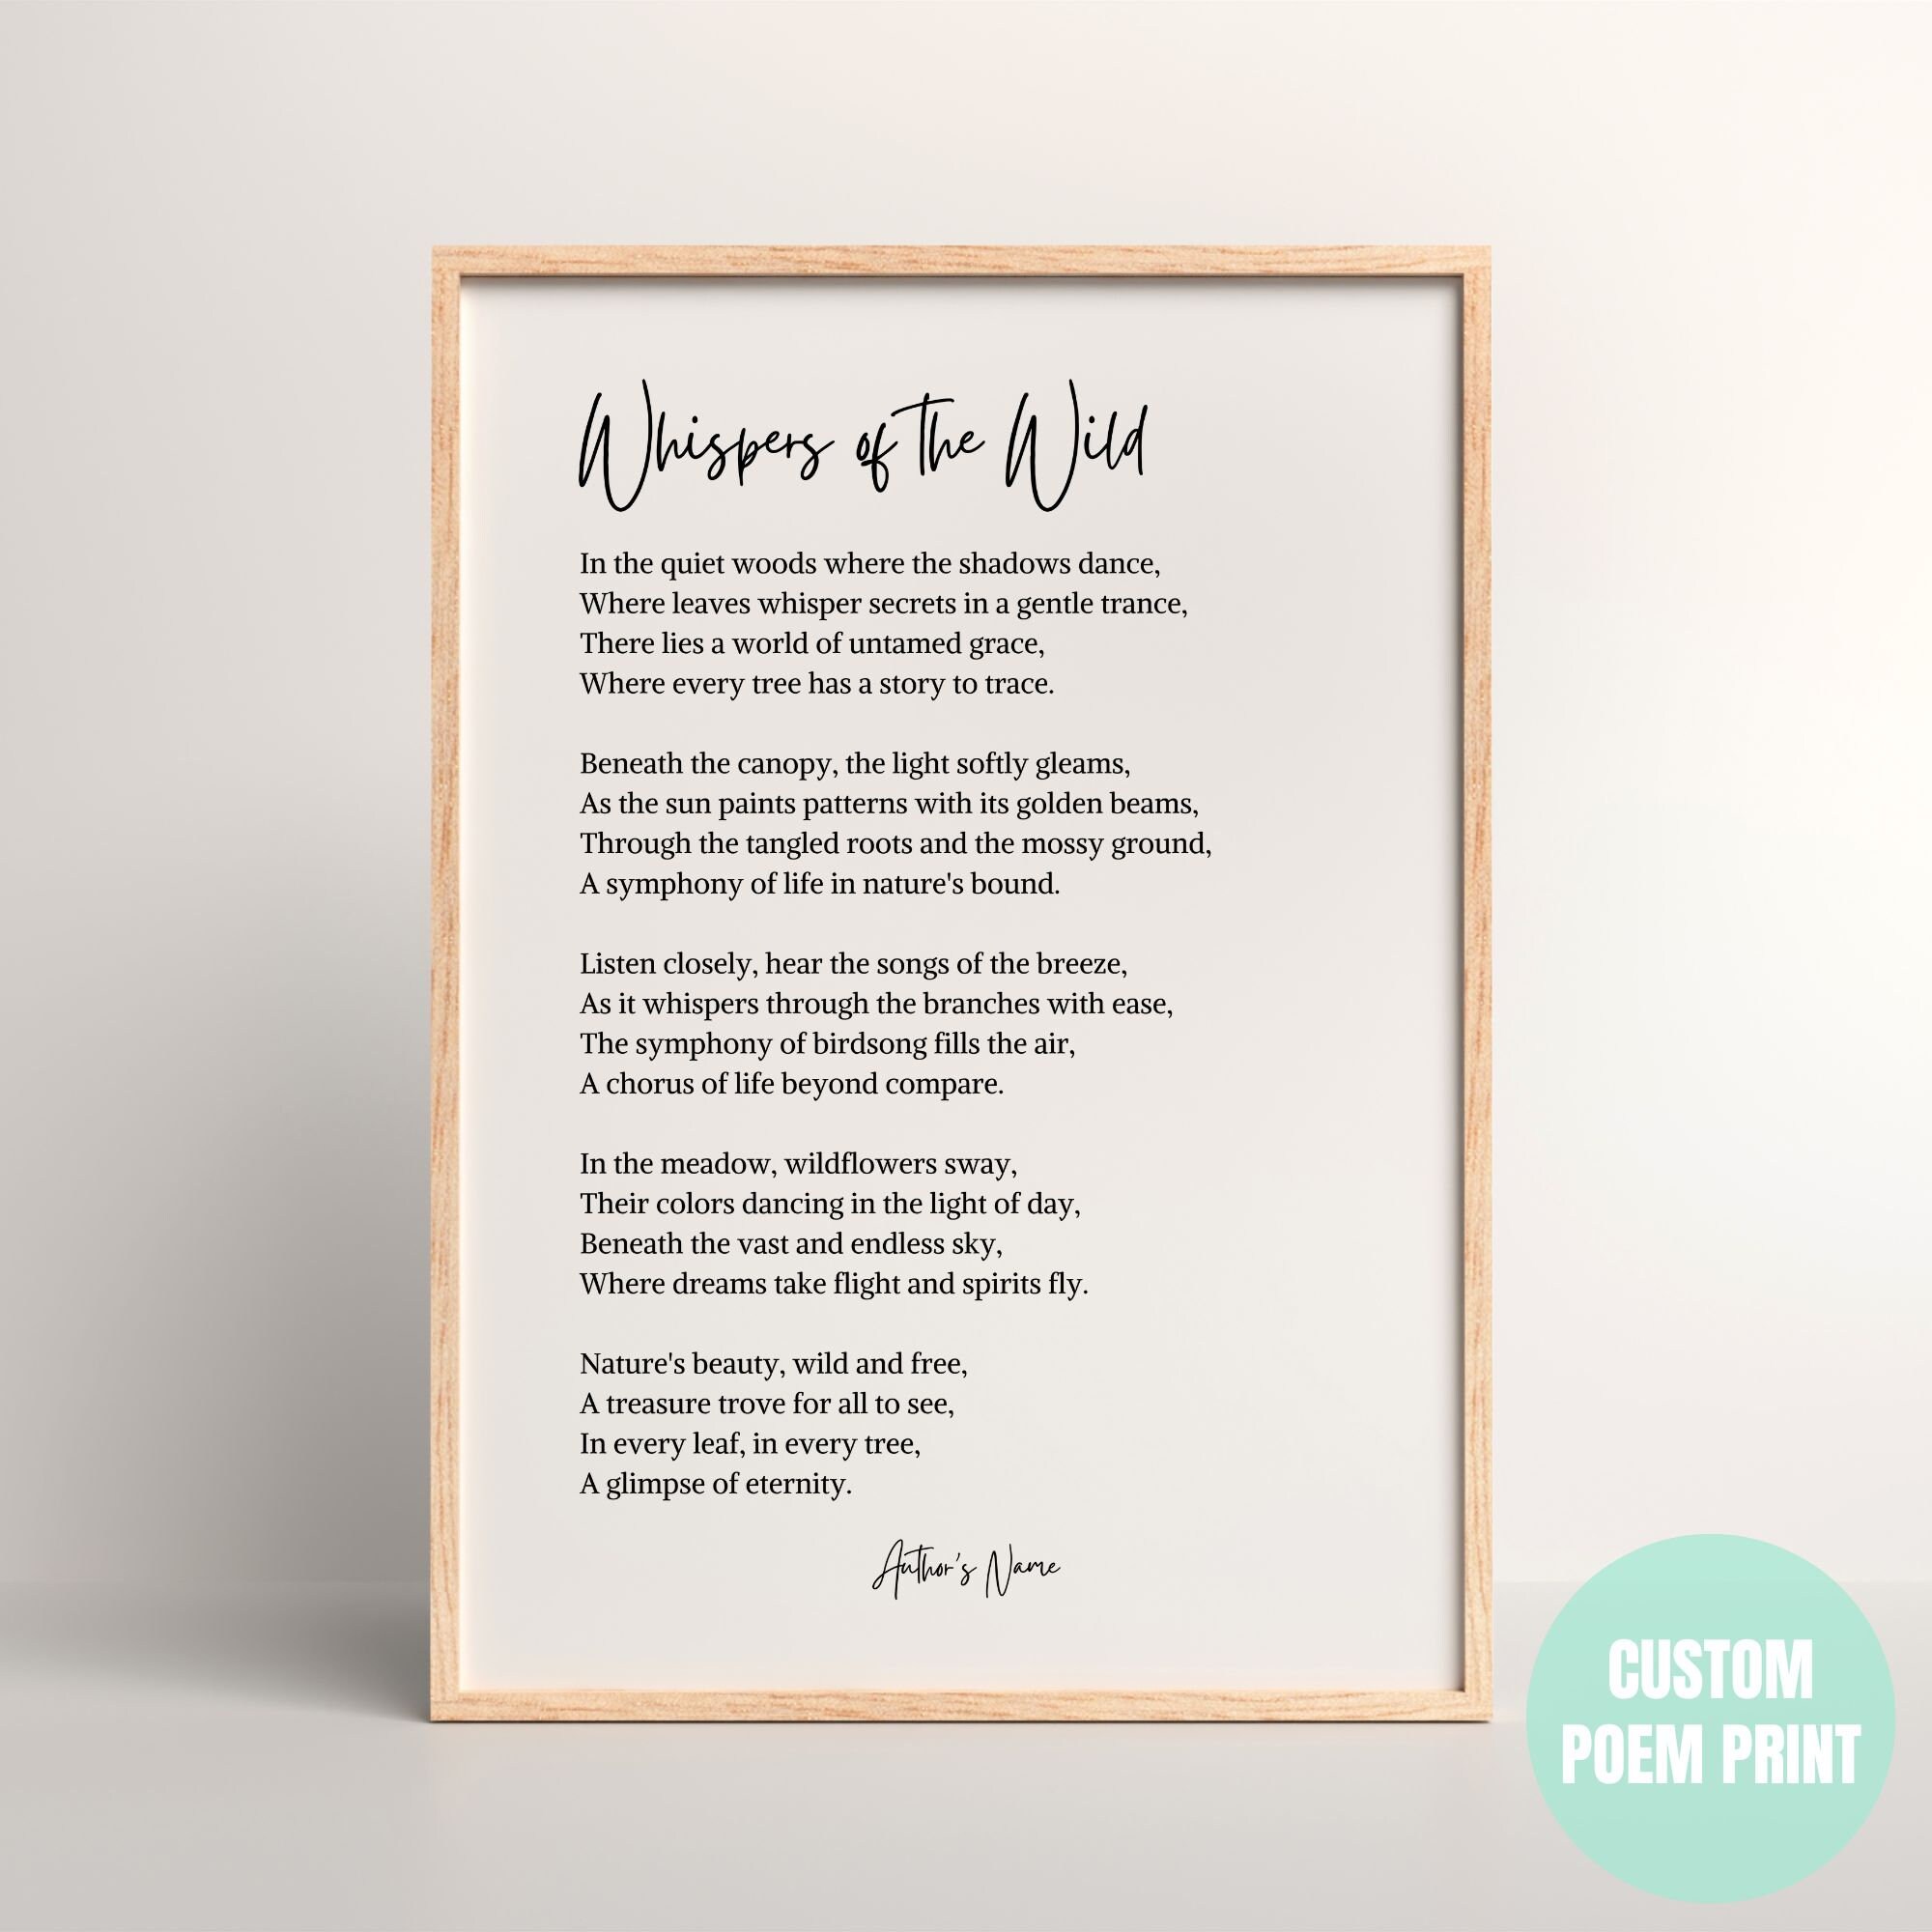 Whispers of the Wild
In the quiet woods where the shadows dance,
Where leaves whisper secrets in a gentle trance,
There lies a world of untamed grace,
Where every tree has a story to trace.
Beneath the canopy, the light softly gleams,
As the sun paints patterns with its golden beams,
Through the tangled roots and the mossy ground,
A symphony of life in nature's bound.
Listen closely, hear the songs of the breeze,
As it whispers through the branches with ease,
The symphony of birdsong fills the air,
A chorus of life beyond compare.
In the meadow, wildflowers sway,
Their colors dancing in the light of day,
Beneath the vast and endless sky,
Where dreams take flight and spirits fly.
Nature's beauty, wild and free,
A treasure trove for all to see,
In every leaf, in every tree,
A glimpse of eternity.
Author's Name
CUSTOM
POEM PRINT